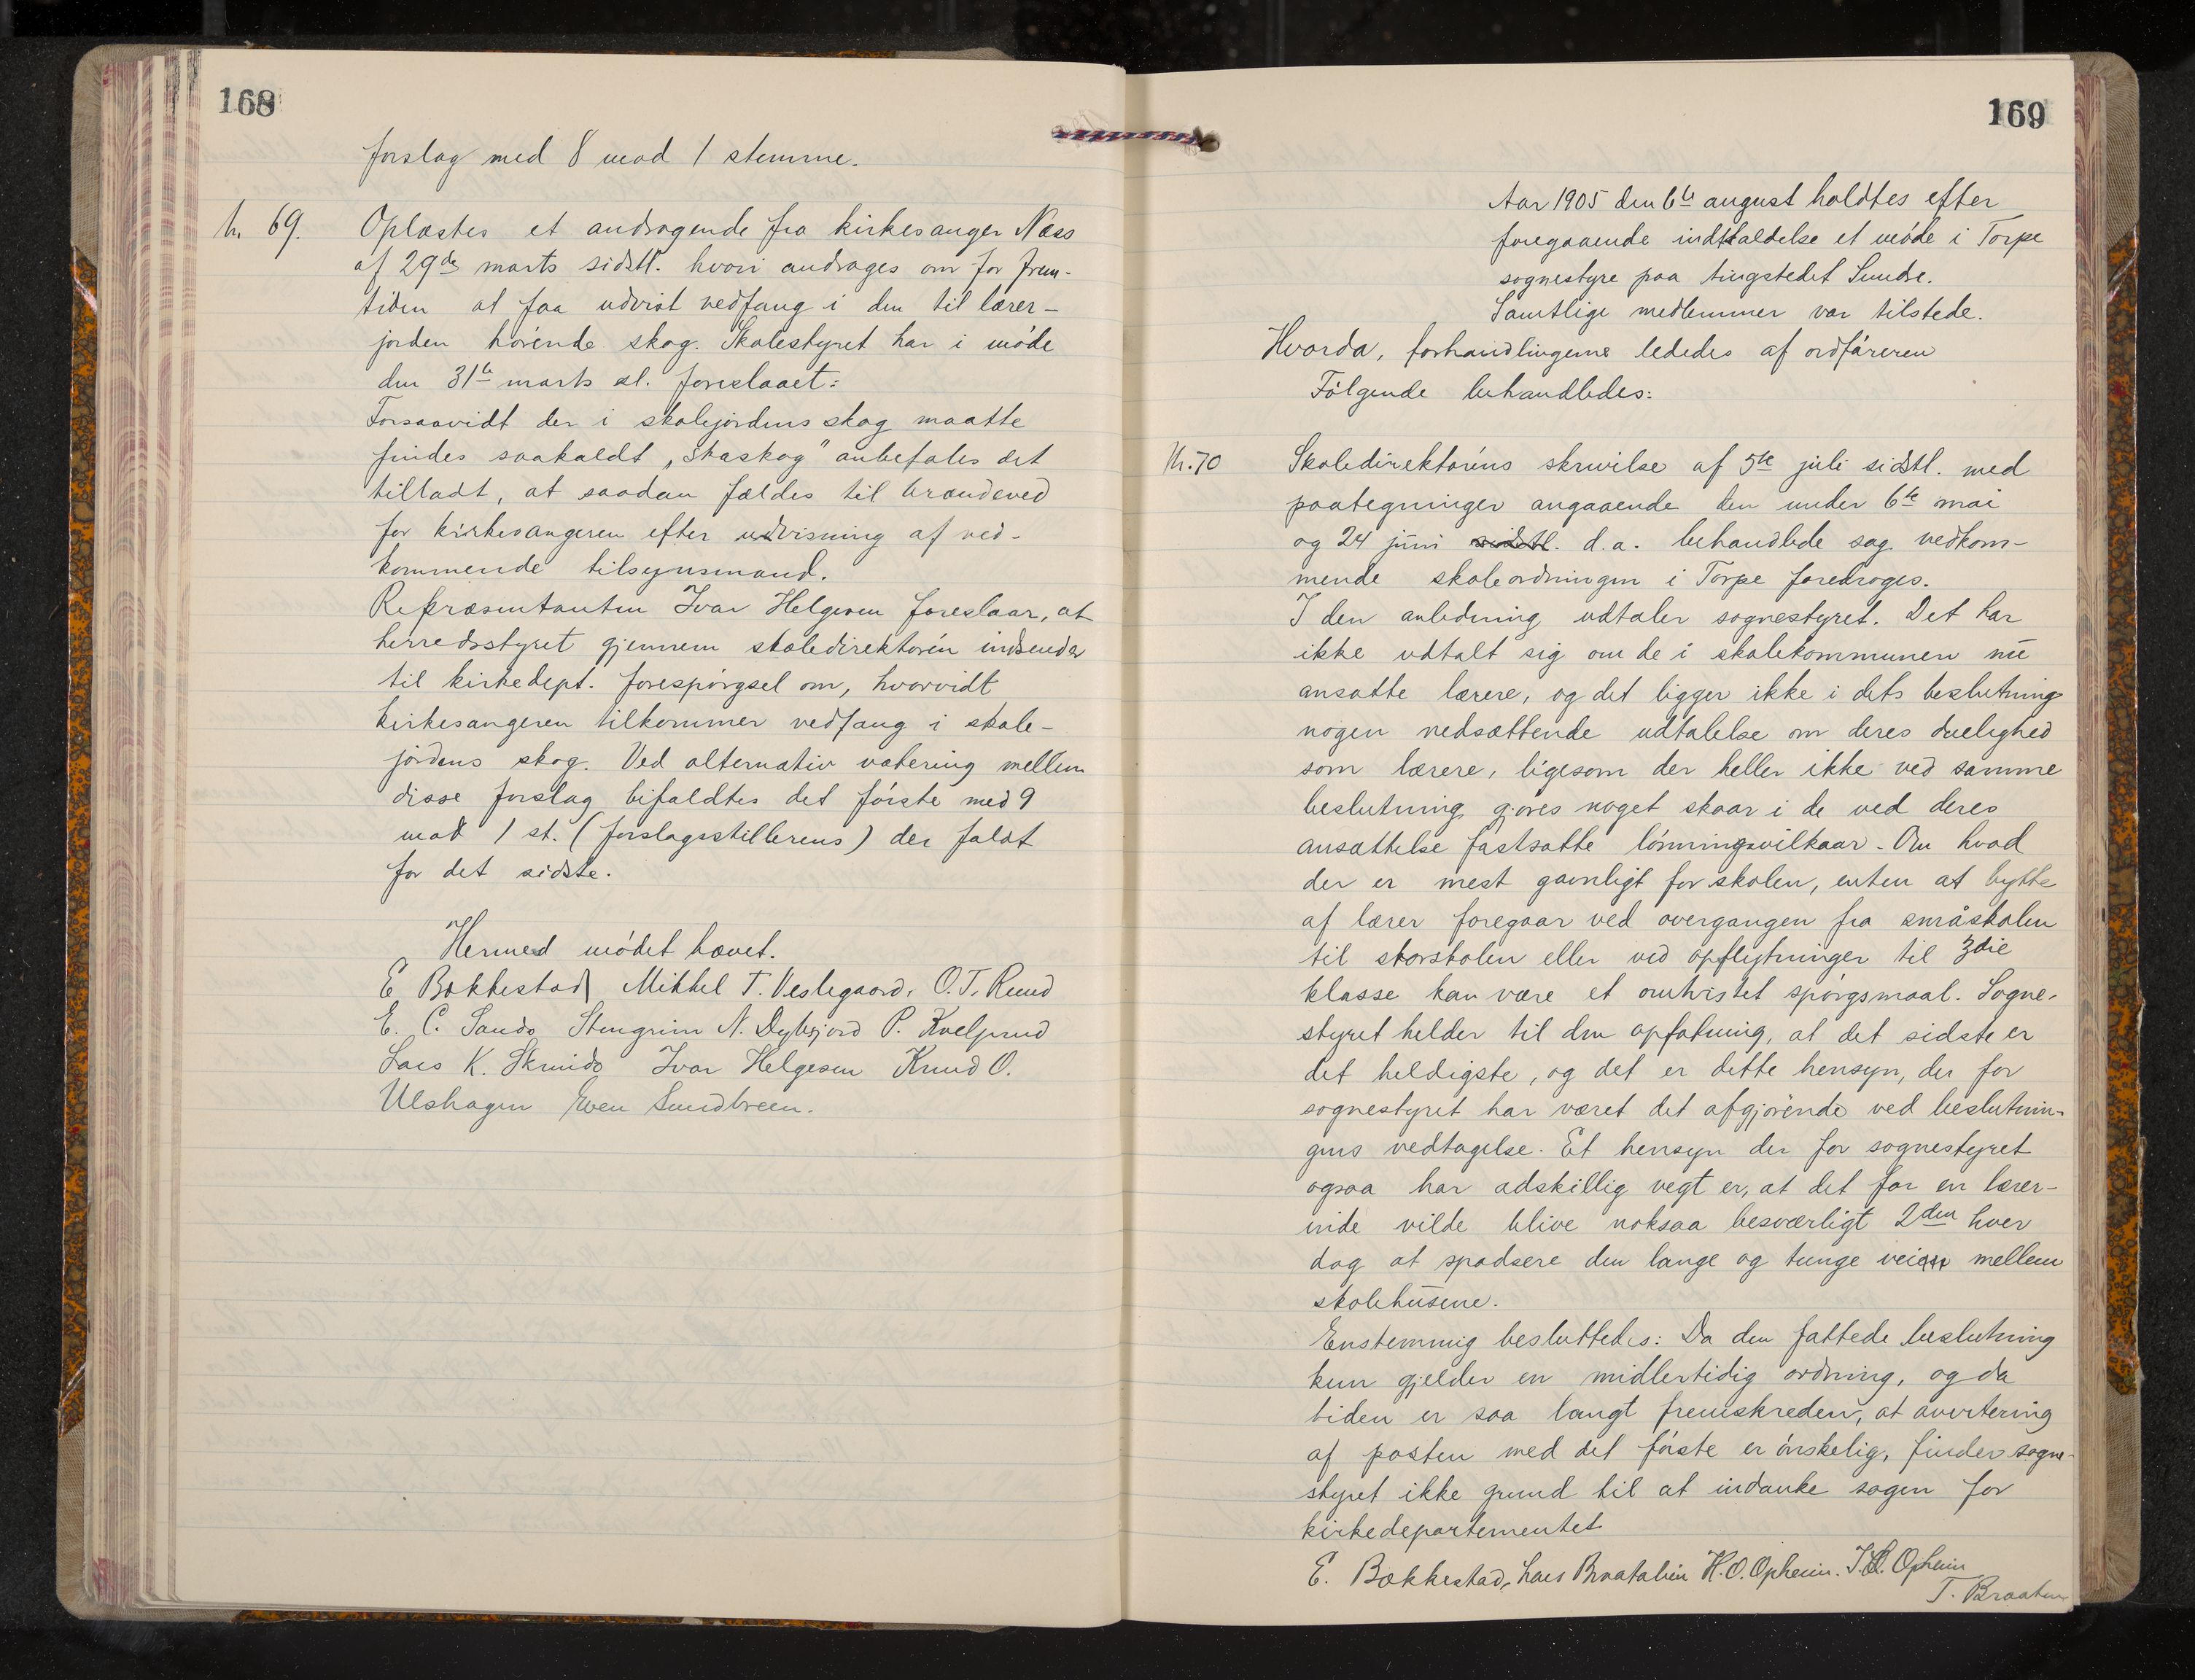 168
forslag med 8 mod 1 stemme.
Nr. 69. Oplæstes et andragende fra kirkesanger Næss
af 29de marts sidstl. hvori andrages om for frem-
tiden at faa udvist vedfang i den til lærer-
jorden hørende skog. Skolestyret har i møde
den 31te marts sl. foreslaaet:
Forsaavidt der i skolejordens skog maatte
findes saakaldt „skaskog" anbefales det
tilladt, at saadan fældes til brændeved
for kirkesangeren efter udvisning af ved-
kommende tilsynsmand.
Repræsentanten Ivar Helgesen foreslaar, at
herredsstyret gjennem skoledirektøren indsender
til kirkedept. forespørgsel om, hvorvidt
kirkesangeren tilkommer vedfang i skole-
jordens skog. Ved alternativ votering mellem
disse forslag bifaldtes det første med 9
mod 1 st. (forslagsstillerens) der faldt
for det sidste.
Hermed mødet hævet.
E Bækkestad Mikkel T. Veslegaard. O. T. Ruud
E. C. Sando Stengrim N. Dybsjord P. Kveljorud
Lars K. Skrindo Ivar Helgesen Knud O.
Ulshagen Even Sundbreen.
169
Aar 1905 den 6te august holdtes efter
foregaaende indkaldelse et møde i Torpe
sognestyre paa tingstedet Sundre.
Samtlige medlemmer var tilstede.
Hvorda, forhandlingerne lededes af ordføreren
Følgende behandledes:
Nr. 70 Skoledirektørens skrivelse af 5te juli sidstl. med
paategninger angaaende den under 6te mai
og 24 juni sidstl. d.a. behandlede sag vedkom-
mende skoleordningen i Torpe foredroges.
I den anledning udtaler sognestyret. Det har
ikke udtalt sig om de i skolekommunen nu
ansatte lærere, og det ligger ikke i dets beslutning
nogen nedsættende udtalelse om deres duelighed
som lærere, ligesom der heller ikke ved samme
beslutning gjøres noget skaar i de ved deres
ansættelse fastsatte lønningsvilkaar. Om hvad
der er mest gavnligt for skolen, enten at bytte
af lærer foregaar ved overgangen fra småskolen
til storskolen eller ved opflytninger til 3die
klasse kan være et omtvistet spørgsmaal. Sogne-
styret helder til den opfatning, at det sidste er
det heldigste, og det er dette hensyn, der for
sognestyret har været det afgjørende ved beslutnin-
gens vedtagelse. Et hensyn der for sognestyret
ogsaa har adskillig vegt er, at det for en lærer-
inde vilde blive noksaa besværligt 2den hver
dag at spadsere den lange og tunge veien mellem
skolehusene.
Enstemmig besluttedes: Da den fattede beslutning
kun gjelder en midlertidig ordning, og da
tiden er saa langt fremskreden, at avertering
af posten med det første er ønskelig, finder sogne-
styret ikke grund til at indanke sagen for
kirkedepartementet
E. Bækkestad, Lars Braatalien H. O. Opheim. Opheim
T. Braaten